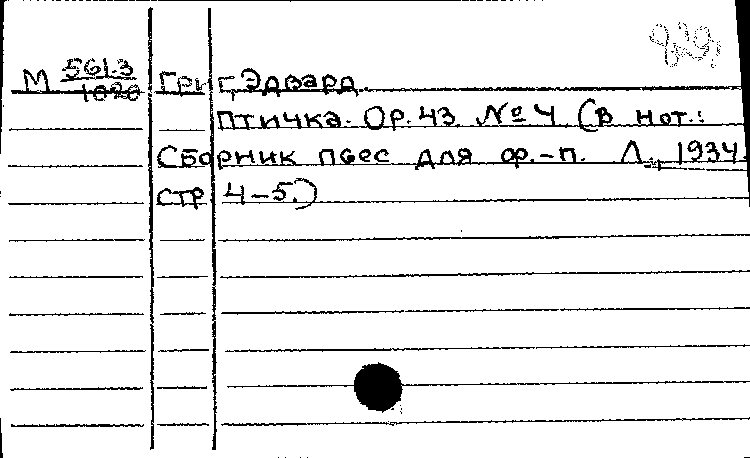 М 561.3/1020 Григ, Эдвард.
Птичка. Op. 43. № 4 (В нот.:
Сборник пьес для ф.-п. Л., 1934.
стр. 4-5.)